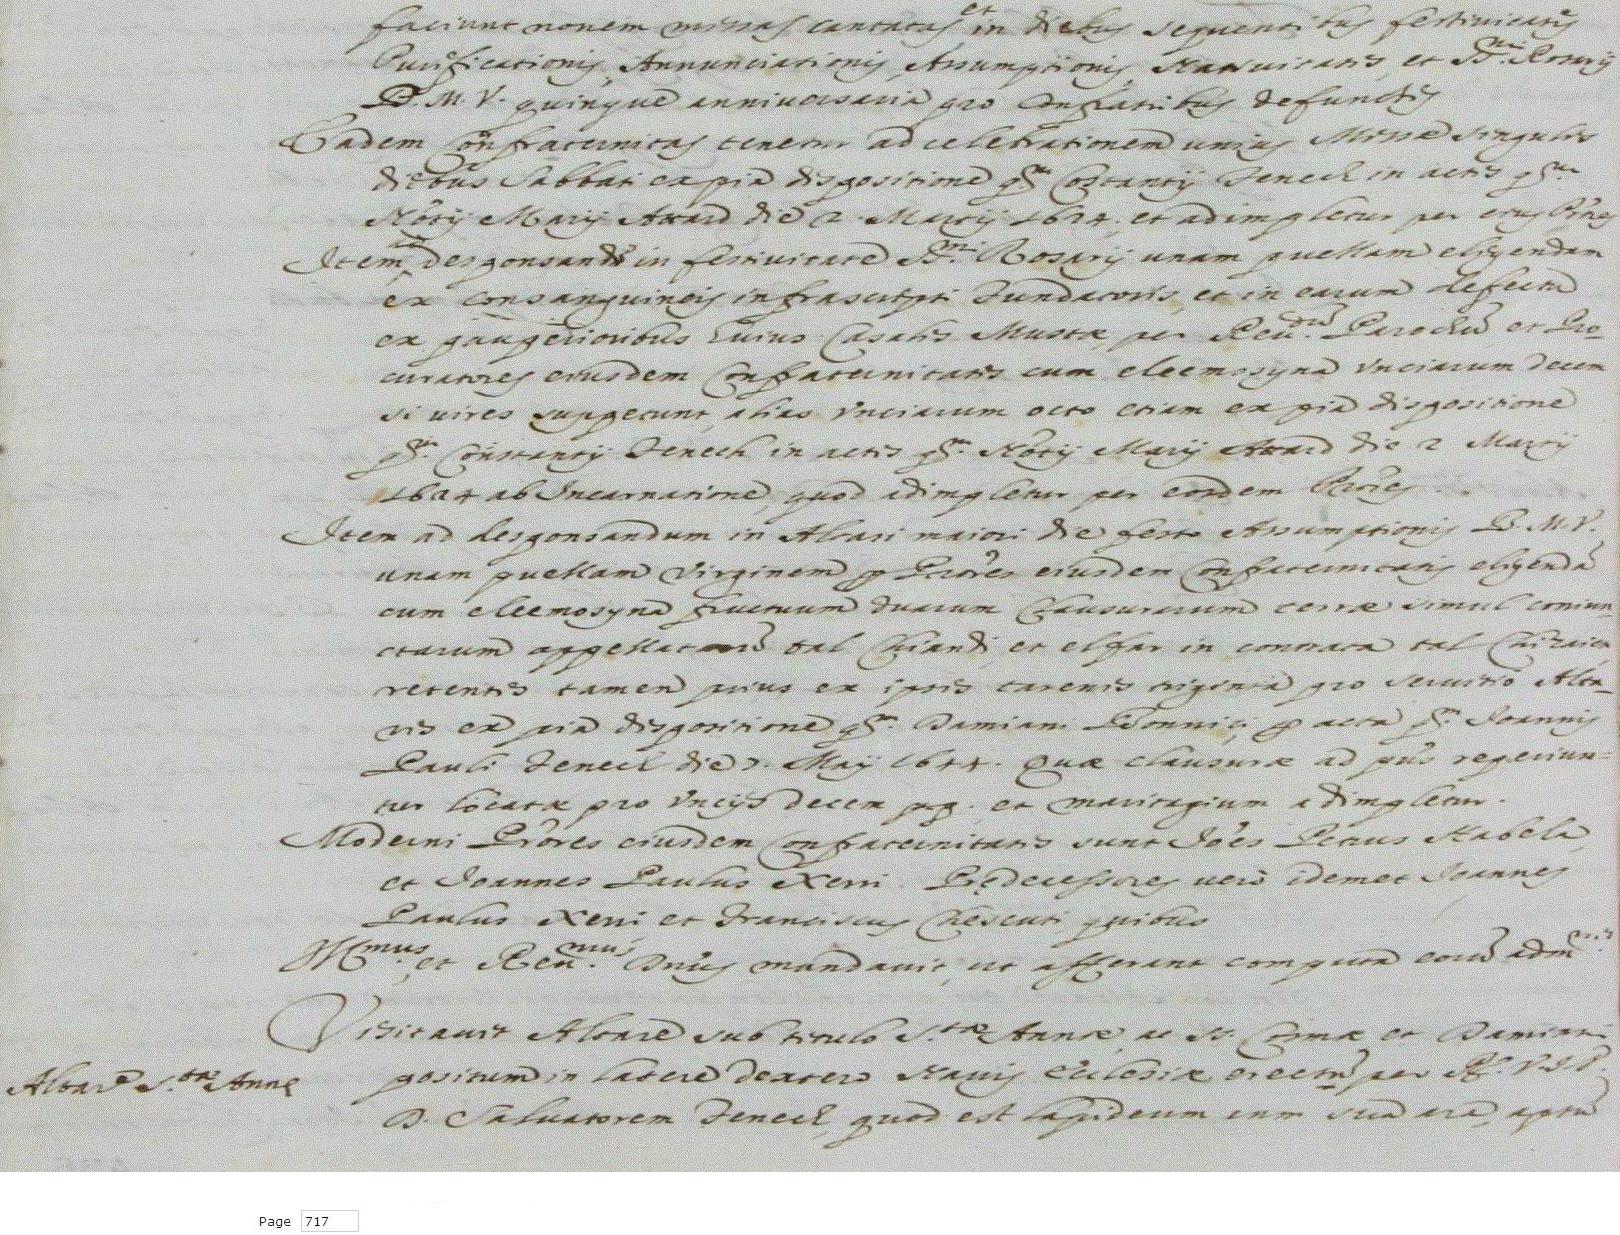 faciunt nonem missas cantatas et in diebus sequenti bus festiuitatis
Purificationis, Annunciationis, Assumptionis, Natiuitatis, et SS.mi Rosarij
B. M. V. quinque anniuersaria pro Confratribus defunctis
Eadem Confraternitas tenetur ad celebrationem unius Missæ singulis
diebus Sabbati ex pia dispositione q.m Costantij Tenech in actis q.m
Not.ij Marij Attard die 2 Martij 1624. et adimpletur per eius Pr̃res
Item desponsandi in festiuitate SS.mi Rosarij unam puellam eligendam
ex consanguineis infrascripti Fundatoris, et in earum defectu
ex pauperioribus huius Casalis Mustæ per Reu.dum Parochũ et Pro=
curatores eiusdem Confraternitatis cum eleemosyna Vnciarum decem
si uires suppetunt, alias Vnciarum octo etiam ex pia dispositione
q.m Constantij Tenech in actis q.m Not.ij Marij Attard die 2 Martij
1624 ab Incarnatione, quod adimpletur per eosdem Pr̃ores
Item ad desponsandum in Altari maiori die festo Assumptionis B. M. V.
unam puellam Virginem p Pr̃ores eiusdem Confraternitatis eligendã
cum eleemosyna fructuum duarum Clausurarum terræ simul coniun=
ctarum appellatarũ tal et in contrata tal
retentis tamen prius ex ipsis tarenis triginta pro seruitio Alta=
ris ex pia dispositione q.m Damiani p acta q.m Joannis
Pauli Tenech die 7. Maij 1644. Quæ clausuræ ad pñs reperiun=
tur locatæ pro Vncijs decem et maritagium adimpletur.
Moderni Pr̃ores eiusdem Confraternitatis sunt Jões Petrus
et Joannes Paulus Xerri Prędecessores uero idemet Joannes
Paulus Xerri et Franciscus Chescuti, quibus
Ill.mus et Reu.mus Dñus mandauit, ut afferant computa eorũ adm.nis
Visitauit Altare sub titulo S.tæ Annæ, ac SS. Cosmæ et Damiani
Altare S.tæ Annę
positum in latere dextero Nauis Ecclesiæ erectũ per
D. Saluatorem Tenech, quod est lapideum cum sua ara, aptũ
Page 717